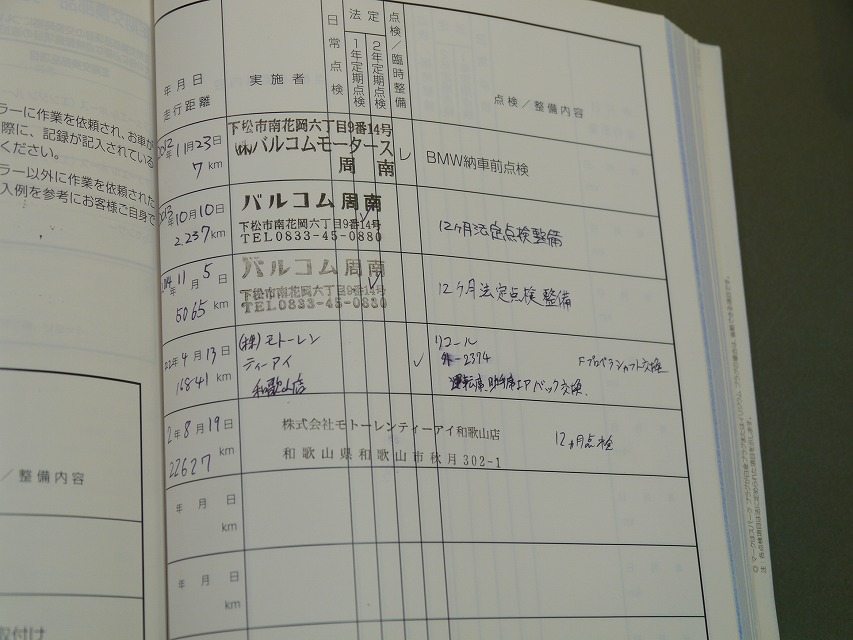 年月日
走行距離
実施者
日常点検
法定
1年定期点検
2年定期点検
点検/臨時整備
点検/整備内容
ラーに作業を依頼され、お車が
際に、記録が記入されている
ください。
ラー以外に作業を依頼された
入例を参考にお客様ご自身で
2012年11月23日
7km
下松市南花岡六丁目9番14号
㈱バルコムモータース
周南
レ
BMW納車前点検
10月10日
2,237km
バルコム周南
下松市南花岡六丁目9番14号
TEL0833-45-0880
12ヶ月法定点検整備
2014年11月5日
5065km
バルコム周南
下松市南花岡六丁目9番14号
TEL0833-45-0880
12ヶ月法定点検整備
年4月13日
16841km
(株)モトーレン
ティーアイ
和歌山店
リコール
外-2374
Fプロペラシャフト交換
運転席、助手席エアバック交換
2年8月19日
22627km
株式会社モトーレンティーアイ和歌山店
和歌山県和歌山市秋月302-1
12ヵ月点検
年月日
km
年月日
km
/整備内容
取付け